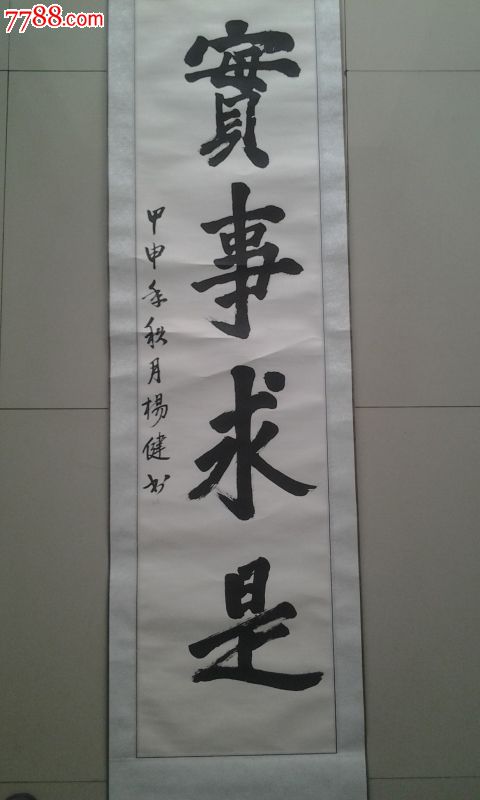 7788.com
實事求是
甲申年秋月楊健书